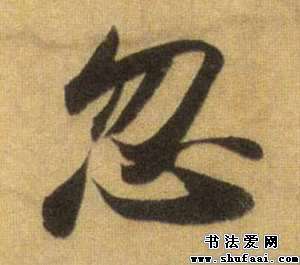 忽
书法爱网
www.shufaai.com